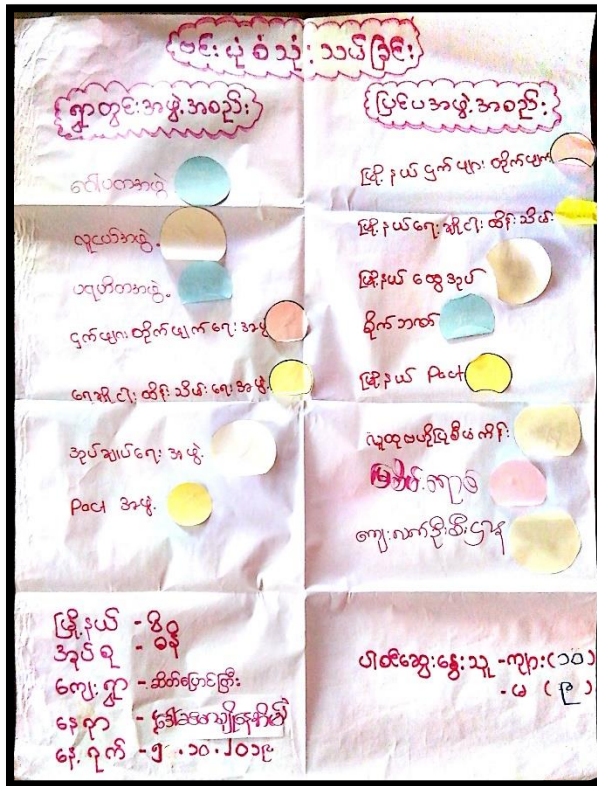 ဗင်းပုံစံသုံးသပ်ခြင်း
ရွာတွင်းအဖွဲ့အစည်း
ဂေါပကအဖွဲ့
လူငယ်အဖွဲ့
ပရဟိတအဖွဲ့
ငှက်ဖျားတိုက်ဖျက်ရေးအဖွဲ့
ရေချိုငါးထိန်းသိမ်းရေးအဖွဲ့
အုပ်ချုပ်ရေးအဖွဲ့
Pact အဖွဲ့
ပြင်ပအဖွဲ့အစည်း
မြို့နယ်ငှက်ဖျားတိုက်ဖျက်
မြို့နယ်ရေချိုငါးထိန်းသိမ်း
မြို့နယ်ထွေအုပ်
စိုက်ဘဏ်
မြို့နယ် Pact
လူထုဗဟိုပြုစီမံကိန်း
မြစိမ်းရောင်
ကျေးလက်ဦးစီးဌာန
မြို့နယ် -
အုပ်စု -
ကျေးရွာ - ဆိတ်ပြောင်ကြီး
နေရာ -
နေ့ရက် - ၅.၁၀.၂၀၁၉
ပါဝင်ဆွေးနွေးသူ - ကျား (၁၀)
- မ (၉)